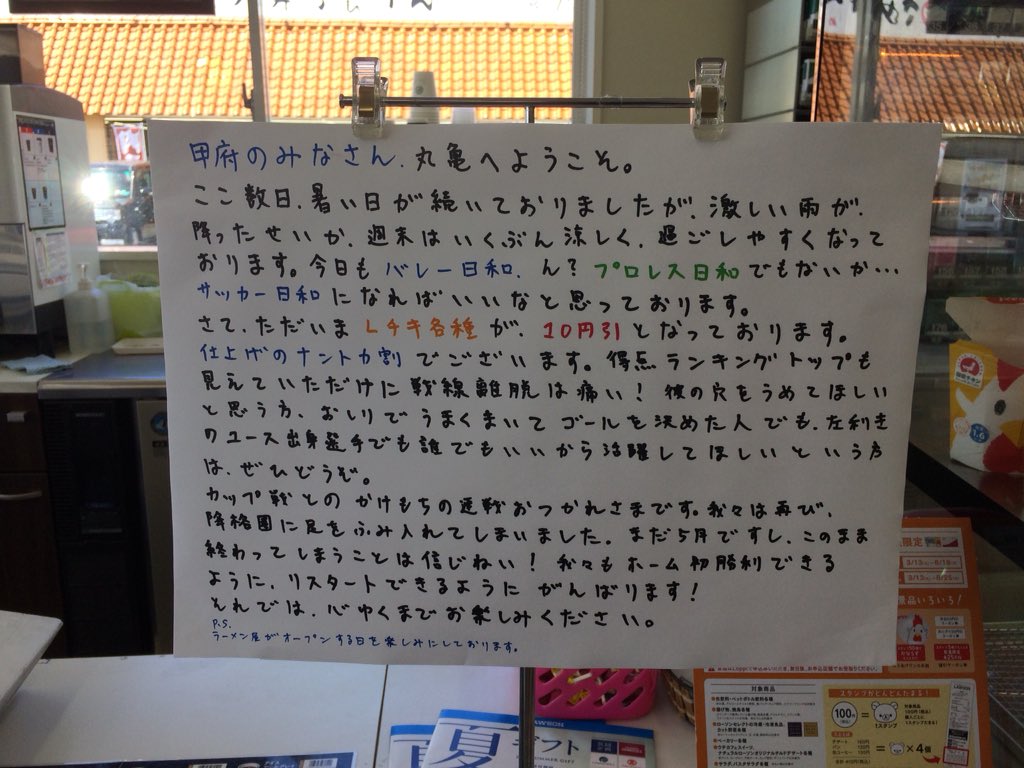 甲府のみなさん、丸亀へようこそ。
ここ数日、暑い日が続いておりましたが、激しい雨が、
降ったせいか、週末はいくぶん涼しく、過ごしやすくなって
おります。今日も バレー日和、ん? プロレス日和でもないか…
サッカー日和になればいいなと思っております。
さて、ただいま Lチキ各種が、10円引となっております。
仕上げのナントカ割 でございます。得点ランキングトップも
見えていただけに戦線離脱は痛い! 彼の穴をうめてほしい
と思う方、おしりでうまくまいてゴールを決めた人でも、左利き
のユース出身選手でも誰でもいいから活躍してほしいという方
は、ぜひどうぞ。
カップ戦とのかけもちの連戦おつかれさまです。我々は再び、
降格圏に足をふみ入れてしまいました。まだ5月ですし、このまま
終わってしまうことは信じねい! 我々もホーム初勝利できる
ように、リスタートできるようにがんばります!
それでは、心ゆくまでお楽しみください。
P.S.
ラーメン屋がオープンする日を楽しみにしております。
夏ギフト
LAWSON
景品いろいろ!
対象商品
スタンプがどんどんたまる!
100円
1スタンプ
×4個